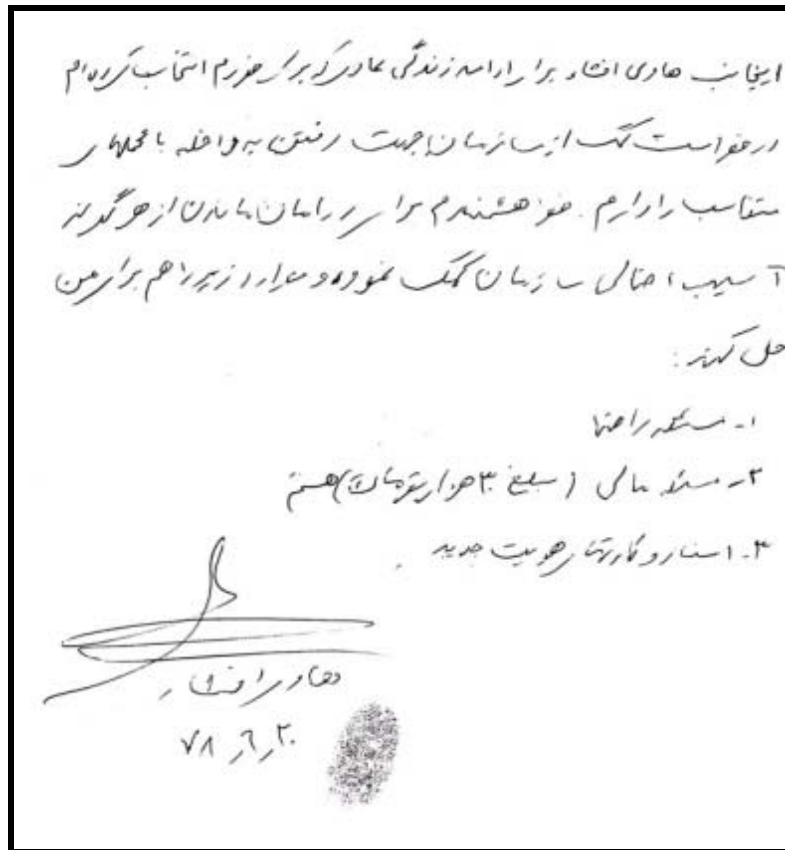 اینجانب هادی افشار برای ادامه زندگی عادی که برای خودم انتخاب کرده‌ام
درخواست کمک از سازمان جهت رفتن به داخله با محملهای
متناسب را دارم. خواهشمندم برای در امان ماندن از هر گونه
آسیب احتمالی سازمان کمک نموده و موارد زیر را هم برای من
حل کنند:
۱- مسئله راهنما
۲- مسئله مالی (مبلغ ۳۰ هزار تومان) هستم
۳- اسناد و کارتهای هویت جدید.
هادی افشار
۷۸/۶/۲۰